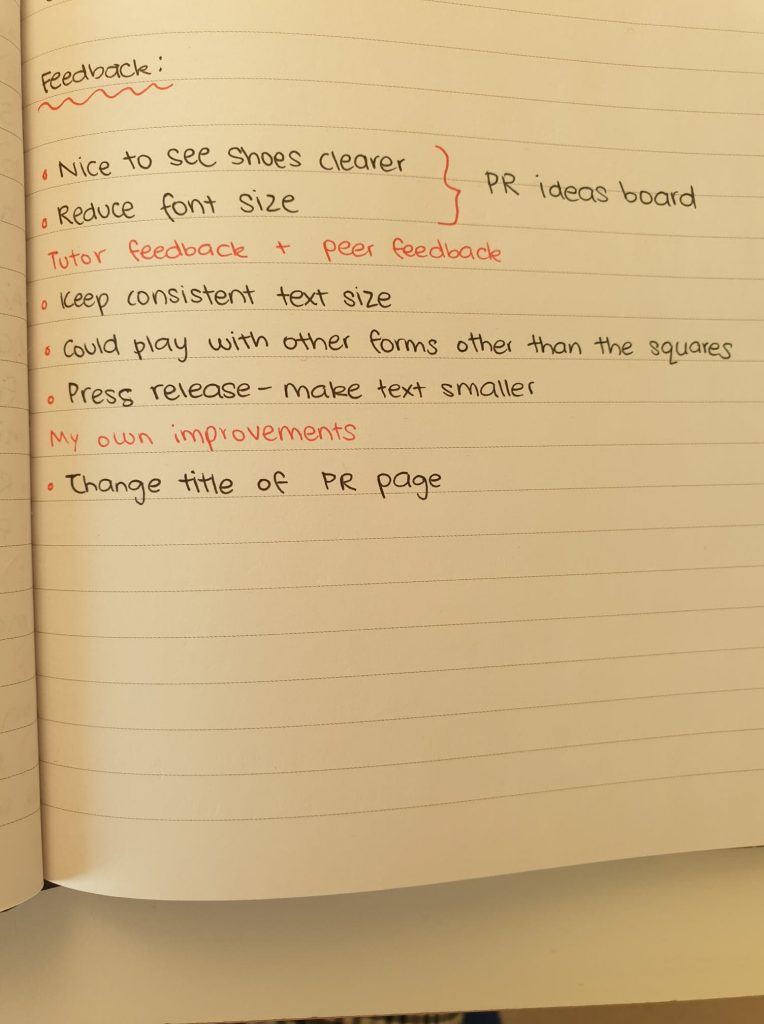 Feedback:
• Nice to see shoes clearer
• Reduce font size
} PR ideas board
Tutor feedback + peer feedback
• Keep consistent text size
• Could play with other forms other than the squares
• Press release - make text smaller
My own improvements
• Change title of PR page